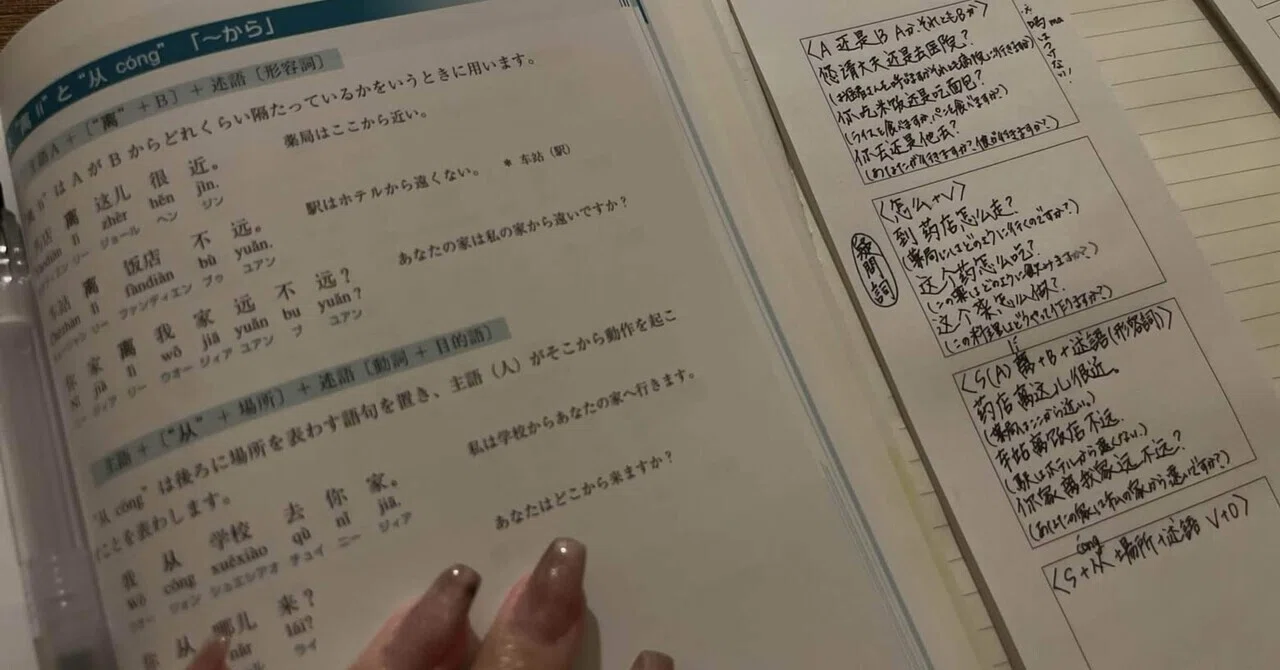 "离 lí" と "从 cóng" 「～から」
主語A +〔"离" + B〕+ 述語〔形容詞〕
"离 lí" は A が B からどれくらい隔たっているかをいうときに用います。
药店 离 这儿 很 近。 薬局はここから近い。
yàodiàn lí zhèr hěn jìn.
リー ジョール ヘン ジン
车站 离 饭店 不 远。 駅はホテルから遠くない。 * 车站（駅）
chēzhàn lí fàndiàn bù yuǎn.
リー ファンディエン ブゥ ユアン
你 家 离 我 家 远 不 远？ あなたの家は私の家から遠いですか？
Nǐ jiā lí wǒ jiā yuǎn bu yuǎn?
ジィア リー ウオー ジィア ユアン ブ ユアン
主語 +〔"从" + 場所〕+ 述語〔動詞 + 目的語〕
"从 cóng" は後ろに場所を表わす語句を置き、主語（人）がそこから動作を起こ
すことを表わします。
我 从 学校 去 你 家。 私は学校からあなたの家へ行きます。
Wǒ cóng xuéxiào qù nǐ jiā.
ウオー ツォン シュエシアオ チュイ ニー ジィア
你 从 哪儿 来？ あなたはどこから来ますか？
nǎr lái?
ライ
〈A 还是 B Aか、それともBか〉
您请大夫还是去医院？
你吃米饭还是吃面包？
(ライスを食べますか、パンを食べますか？)
你去还是他去？
(あなたが行きますか？彼が行きますか？)
吗 ma
はつけない！
〈怎么+V〉
疑問詞
到药店怎么走？
(薬局にはどのように行くのですか？)
这个药怎么吃？
(この薬はどのように飲みますか？)
这个菜怎么做？
(この料理はどうやって作りますか？)
〈S(A) 离+B+述語(形容詞)〉
药店离这儿很近。
(薬局はここから近い。)
车站离饭店不远.
(駅はホテルから遠くない。)
你家离我家远不远？
(あなたの家は私の家から遠いですか？)
cóng
〈S+从+場所+述語 V+O〉